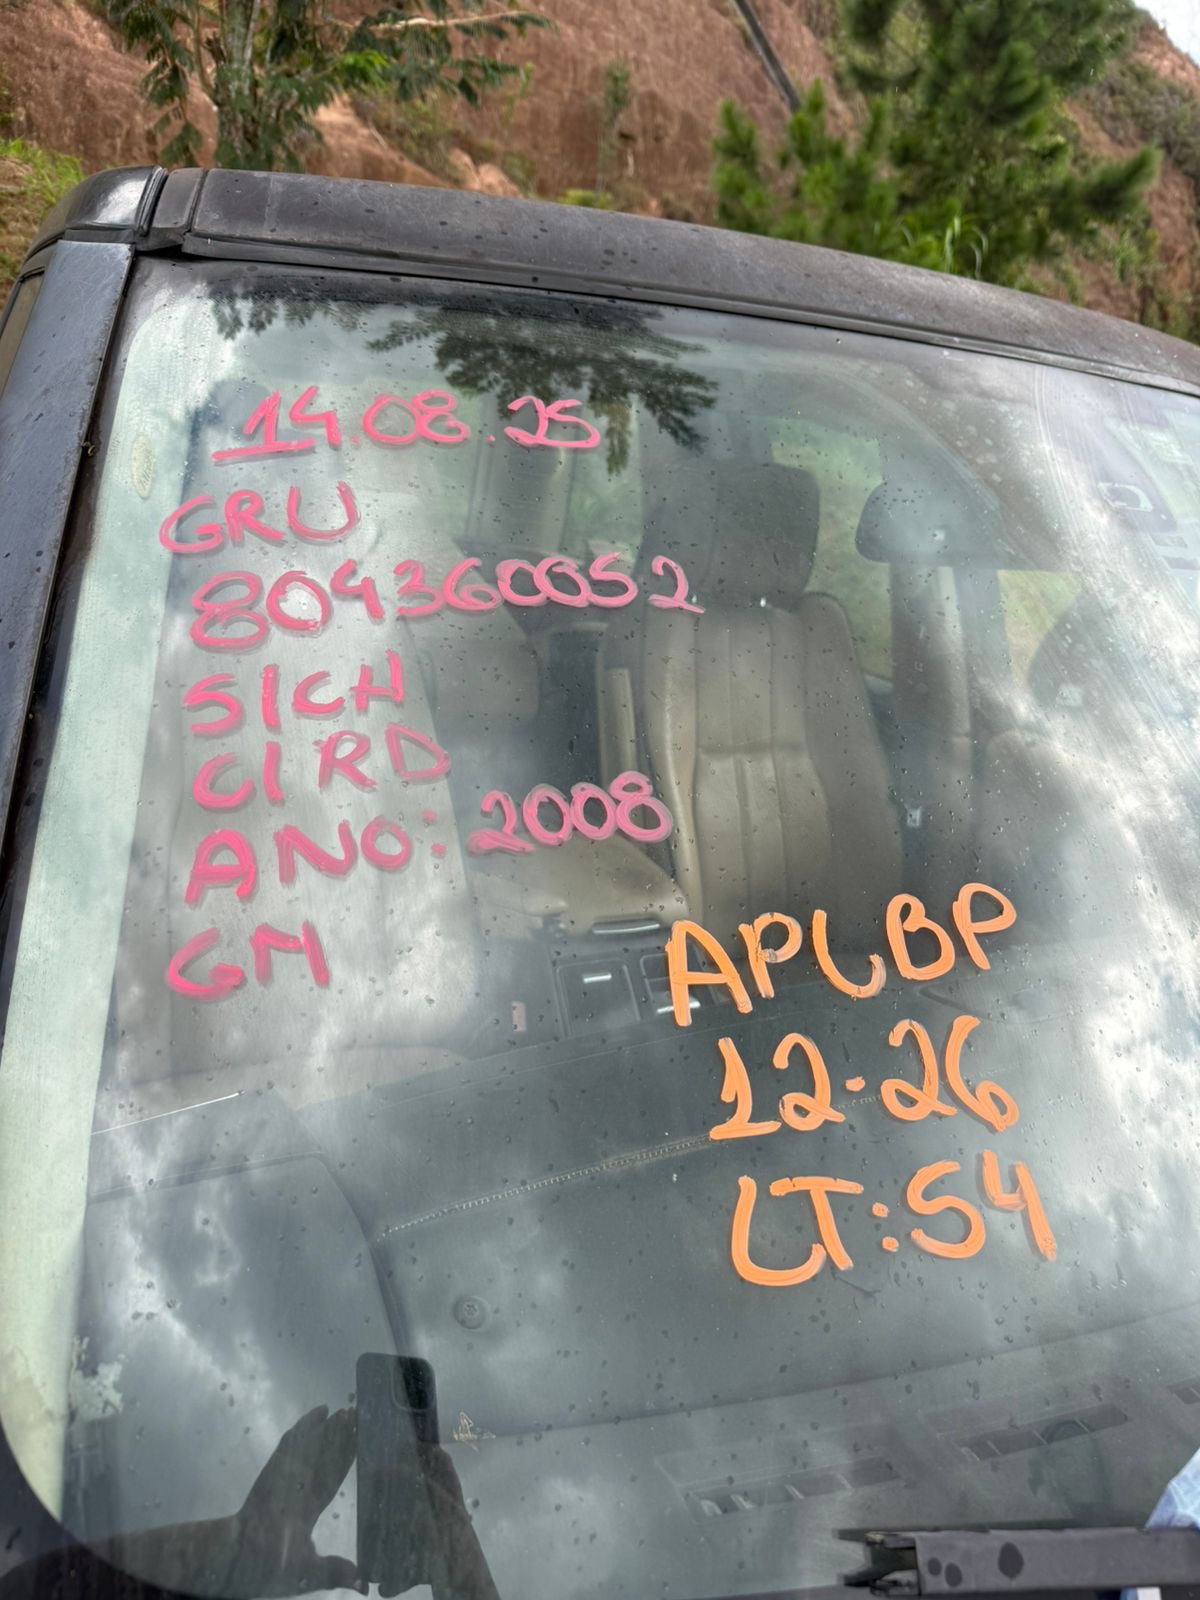 14.08.25
GRU
804360052
SICH
CIRD
ANO: 2008
GM
APLBP
12-26
LT:54